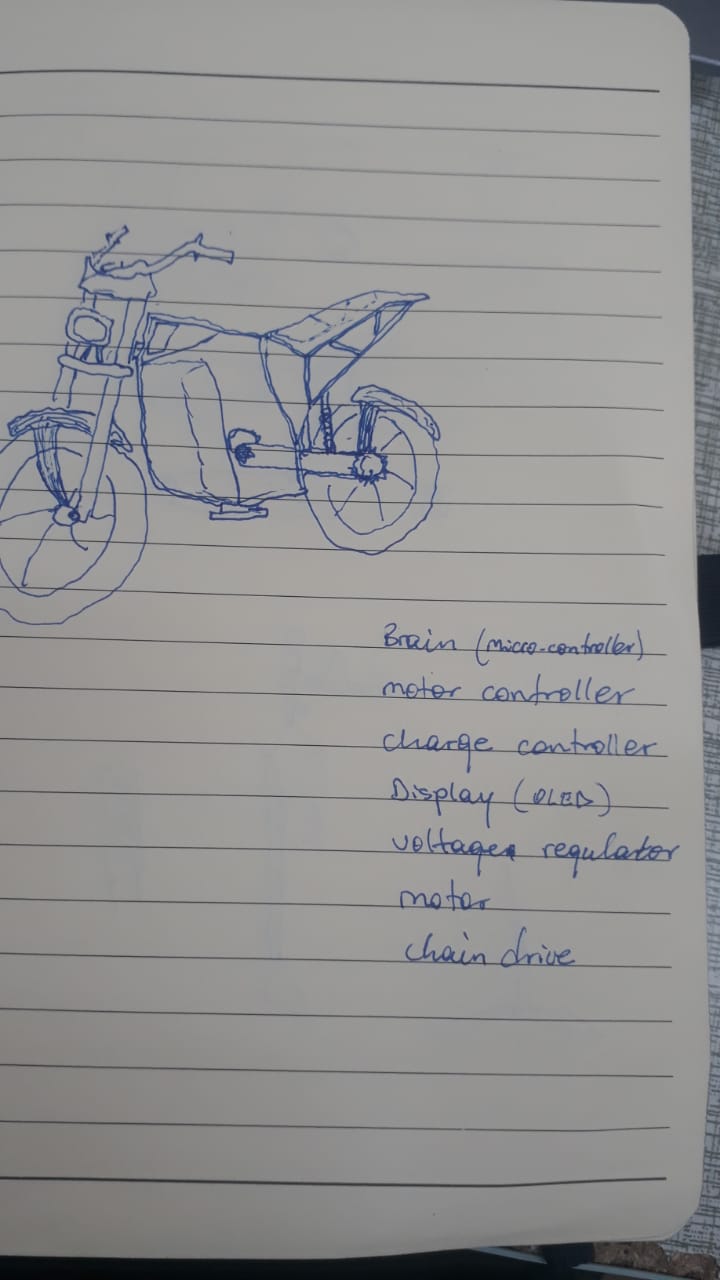 Brain (micro-controller)
motor controller
charge controller
Display (OLED)
voltage regulator
motor
chain drive